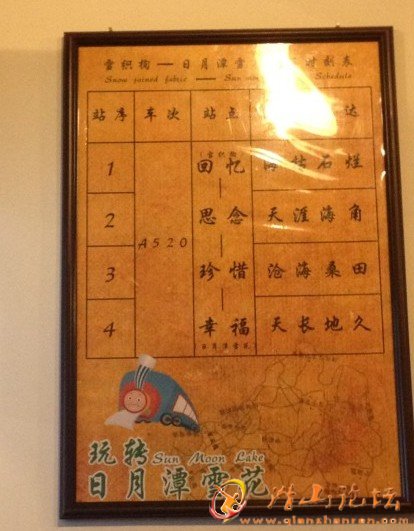 雪织构—日月潭雪 时刻表
Snow joined fabric — Sun moon Schedule
站序 车次 站点 达
1 (雪织构) 回忆 海枯石烂
2 思念 天涯海角
A520
3 珍惜 沧海桑田
4 幸福 天长地久
(日月潭雪花)
玩转 Sun Moon Lake
日月潭雪花
潜山论坛
www.qianshanren.com